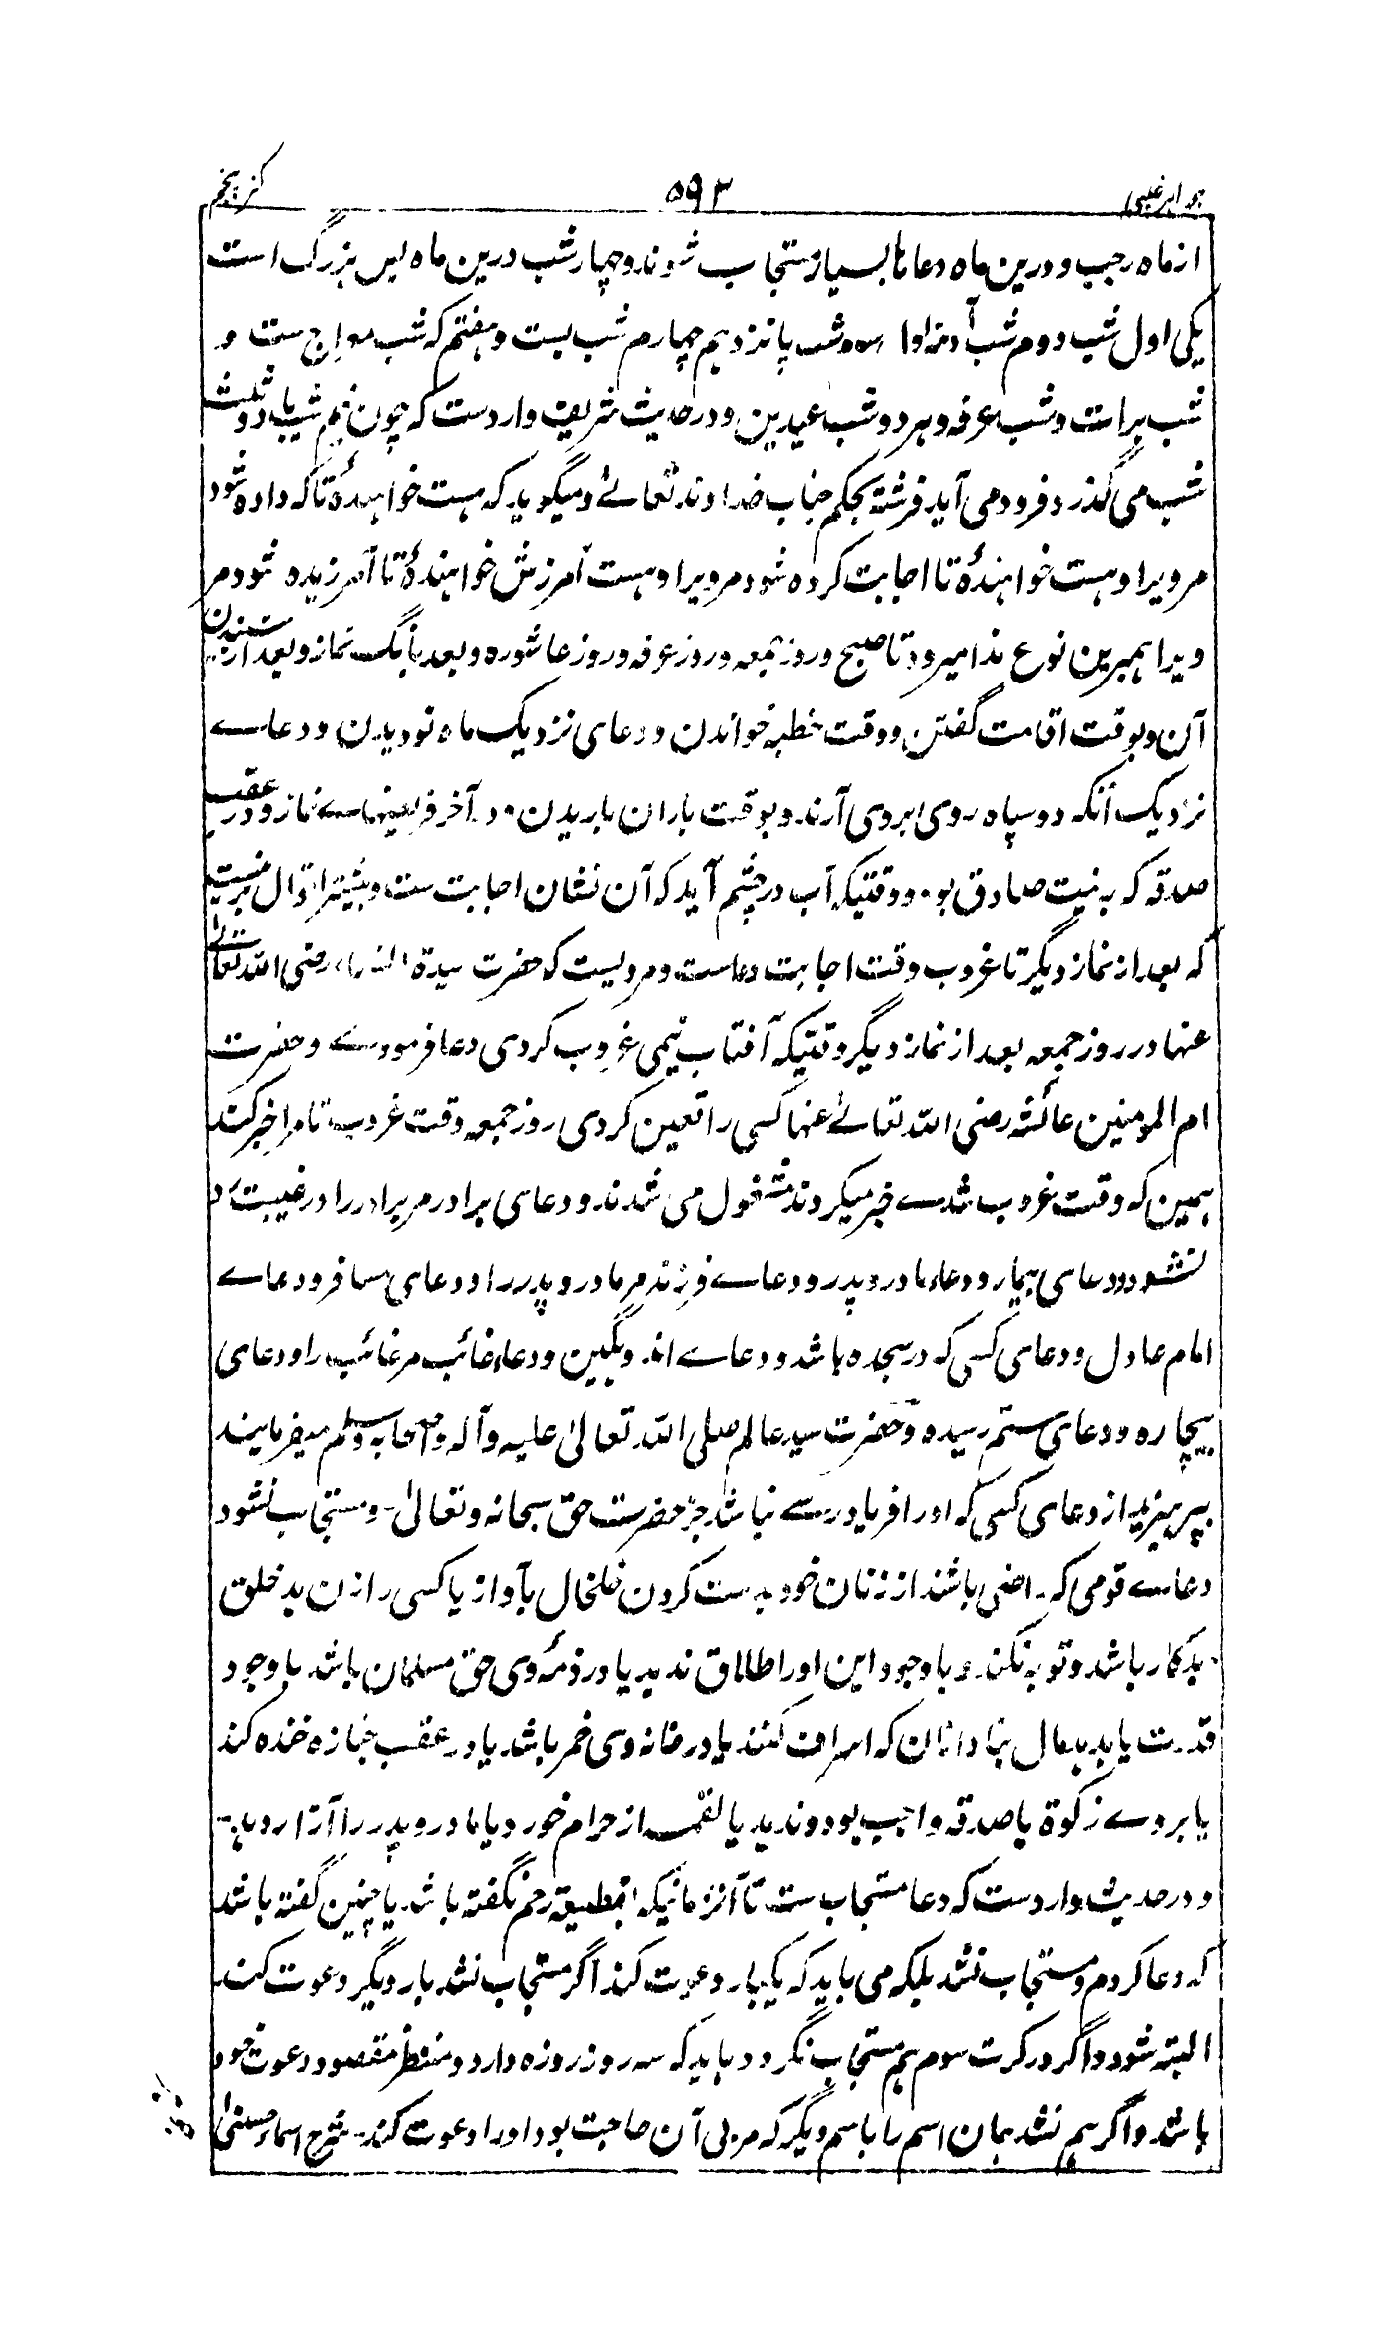 جواهر غیبی ۵۹۳ کنز پنجم
از ماه رجب و درین ماه دعاها بسیار مستجاب شوند و چهار شب درین ماه بس بزرگ است
یکی اول شب دوم شب آدینه اول سوم شب پانزدهم چهارم شب بست و هفتم که شب معراج ست و
شب برات و شب عرفه و هر دو شب عیدین و در حدیث شریف وارد ست که چون نیم شب یا دو ثلث
شب می گذرد فرود می آید فرشتۀ بحکم جناب خداوند تعالے و میگوید که هست خواهندۀ تا که داده شود
مر ویرا و هست خواهندۀ تا اجابت کرده شود مر ویرا و هست آمرزش خواهندۀ تا آمرزیده شود مر
ویرا همبرین نوع ندا میرود تا صبح و روز جمعه و روز عرفه و روز عاشوره و بعد بانگ نماز و بعد از شنیدن
آن و بوقت اقامت گفتن و وقت خطبه خواندن و دعای نزدیک ماه نو دیدن و دعاے
نزدیک آنکه دو سپاه روی بروی آرند و بوقت باران باریدن و در آخر فریضهاے نماز و در عقب
صدقه که به نیت صادق بود و وقتیکه آب در چشم آید که آن نشان اجابت ست و بیشتر اقوال بر نیست
که بعد از نماز دیگر تا غروب وقت اجابت دعاست و مرویست که حضرت سیدة النساء رضی الله تعالی
عنها در روز جمعه بعد از نماز دیگر وقتیکه آفتاب نیمی غروب کردی دعا فرمودے و حضرت
ام المومنین عائشه رضی الله تعالے عنها کسی را تعین کردی روز جمعه وقت غروب تا مرا خبر کند
همین که وقت غروب شدے خبر میکردند مشغول می شدند و دعای برادر مر برادر را در غیبت رد
نشود و دعای بیمار و دعاء مادر و پدر و دعاے فرزند مر مادر و پدر را و دعای مسافر و دعاے
امام عادل و دعای کسی که در سجده باشد و دعاے اندوهگین و دعاء غائب مر غائب را و دعای
بیچاره و دعای ستم رسیده و حضرت سید عالم صلی الله تعالیٰ علیه وآله واصحابه وسلم میفرمایند
بپرهیزید از دعای کسی که او را فریادرسے نباشد جز حضرت حق سبحانه و تعالیٰ - و مستجاب نشود
دعاے قومی که راضی باشند از زنان خود بدست کردن خلخال بآواز یا کسی را زن بد خلق
بدکار باشد و توبه نکند و با وجود این او را طلاق ندهد یا در ذمۀ وی حق مسلمان باشد با وجود
قدرت یا بد بمال بنادانان که اسراف کنند یا در خانه وی خمر باشد یا در عقب جنازه خنده کند
یا بر وے زکوة یا صدقه واجب بود و ندهد یا لقمه از حرام خورد یا مادر و پدر را آزار دهد -
و در حدیث وارد ست که دعا مستجاب ست تا آنزمانیکه قطیعة رحم نگفته باشد یا چنین گفته باشد
که دعا کردم و مستجاب نشد بلکه می باید که یکبار دعوت کند اگر مستجاب نشد بار دیگر دعوت کند
البته شود و اگر در کرت سوم هم مستجاب نگردد باید که سه روز روزه دارد و منتظر مقصود دعوت خود
باشد و اگر هم نشد همان اسم را با اسم دیگر که مربی آن حاجت بود او را دعوت کند - شرح اسماء حسنیٰ